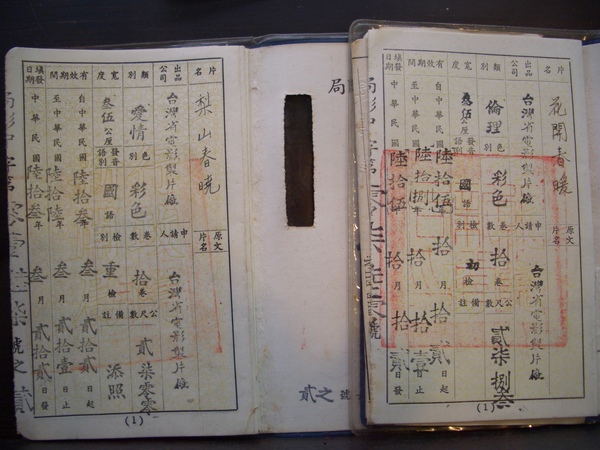 片名 花開春暖 原文片名
出品公司 台灣省電影製片廠 申請人 台灣省電影製片廠
類別 倫理 色別 彩色 卷數 拾 公尺數 貳柒捌叁
寬度 叁伍公厘 發音語別 國語 檢別 初檢 備註
有效期間 自中華民國陸拾伍年拾月拾貳日起
至中華民國陸拾捌年拾月拾壹日止
填發日期 中華民國陸拾伍年拾月拾貳日發
(1)
局
號之貳
片名 梨山春曉 原文片名
出品公司 台灣省電影製片廠 申請人 台灣省電影製片廠
類別 愛情 色別 彩色 卷數 拾卷 公尺數 貳柒零零
寬度 叁伍公厘 發音語別 國語 檢別 重檢 備註 添照
有效期間 自中華民國陸拾叁年叁月貳拾貳日起
至中華民國陸拾陸年叁月貳拾壹日止
填發日期 中華民國陸拾叁年叁月貳拾貳日發
(1)